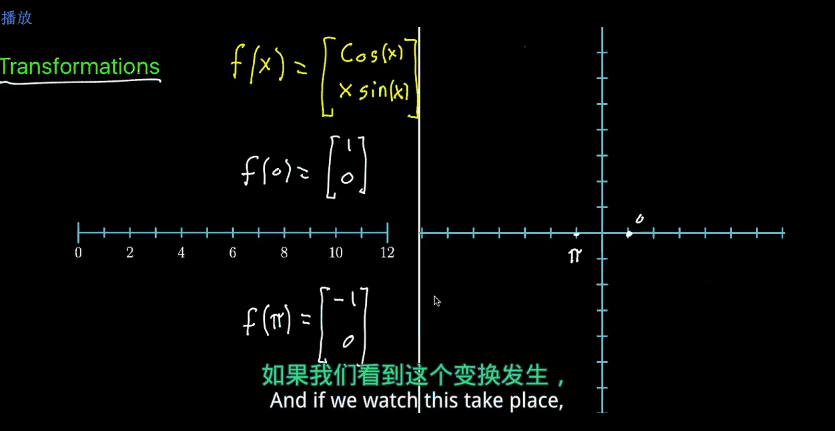 播放
Transformations
f(x) = [cos(x)
x sin(x)]
f(0) = [1
0]
0
0 2 4 6 8 10 12
π
f(π) = [-1
0]
如果我们看到这个变换发生，
And if we watch this take place,